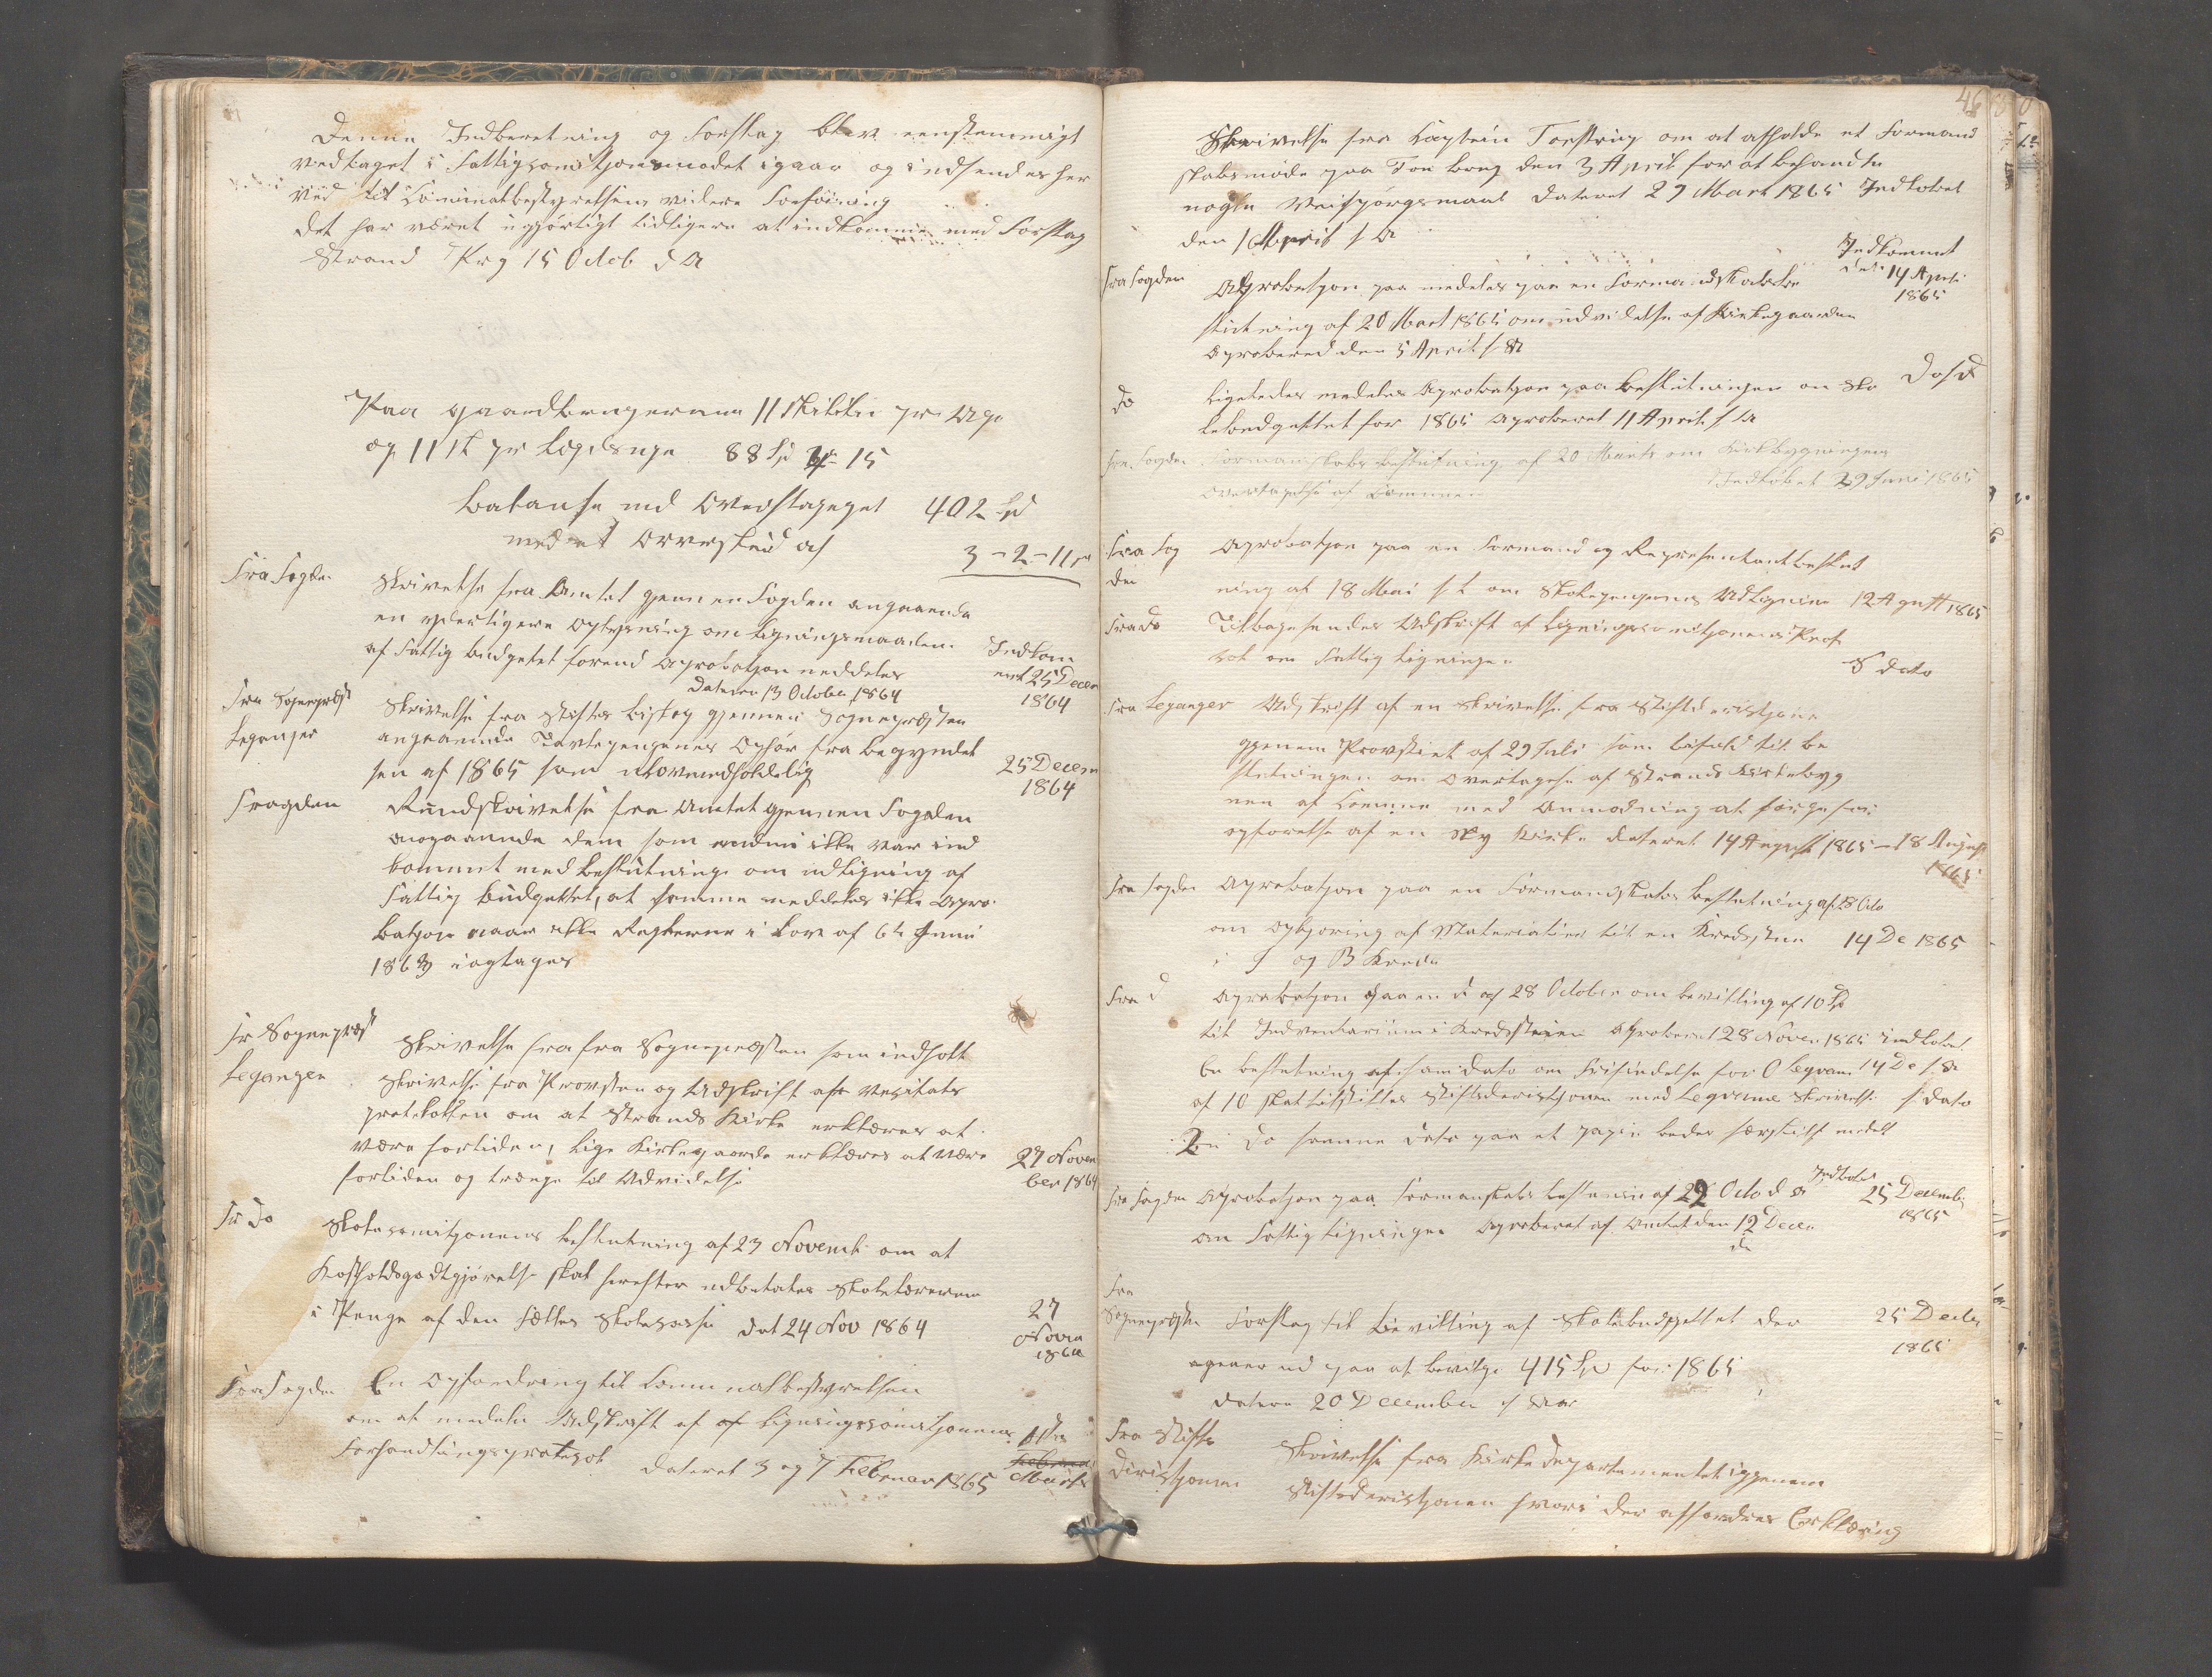 Denne Indberetning og Forslag blev eenstemmigt
vedtaget i Fattigcomitjonsmødet igaar og indsendes her
ved til Comunalbestyrelsens videre Forføining
Det har været ugjørligt tidligere at indkomme med Forslag
Strand Prg 15 Octob d A
Paa gaardbrugerne 11 Skilli pr
og 11 sk pr 88 Spd 15
Balanse med Overslaget 402 Spd
med et Overskud af 3-2-11
Fra Fogden
Skrivelse fra Amtet gjennem Fogden angaaende
en yderligere Oplysning om Ligningsmaaden
af Fattig budgetet forend Aprobatjon meddeles
Dateren 13 October 1864
Indkom
met 25 Decem
1864
Fra Sogneprest
Leganger
Skrivelse fra Stifts Biskop gjennem Sognepresten
angaaende Tavlepengenes Ophør fra Begyndel
sen af 1865 som ulovmedholdelig
25 Decem
1864
Fra Fogden
Rundskrivelse fra Amtet gjennem Fogden
angaaende dem som endnu ikke var ind
kommet med Beslutning om udligning af
Fattig Budgettet, at samme meddeles ikke Apro
batjon naar ikke Reglerne i Lov af 6te Juni
1863 iagtages
Fr Sogneprest
Leganger
Skrivelse fra fra Sognepresten som indholt
Skrivelse fra Provsten og Udskrift af Vesitats
protokollen om at Strands Kirke erklæres at
være forliden, lige Kirkegaarde erklæres at være
forliden og trænge til Udvidelse
27 Novem
ber 1864
Fr Do
Skolecomitjonens Beslutning af 23 Novemb om at
Kostholdsgodtgjørelse skal herefter udbetales Skolelærerne
i Penge af den fælles Skolecasse dat 24 Nov 1864
27
Novem
1864
Fra Fogden
En Opfordring til Comunalbestyrelsen
om at meddele Udskrift af af Ligningscomitjonens
Forhandlingsprotocol Dateret 3 og 7 Februar 1865
Marts
46
Skrivelse fra Captein Torstrup om at afholde et Formand
skabsmøde paa Tou Brug den 3 April for at behandle
nogle Veispørgsmaal Dateret 29 Mart 1865 Indkobet
den 1 April s A
Fra Fogden
Aprobatjon paa meddeles paa en Formandskabsbe
slutning af 20 Mart 1865 om udvidelse af Kirkegaarden
Aproberet den 5 April s A
Indkommet
den 14 April
1865
Do
Ligeledes meddeles Aprobatjon paa Beslutningen om Sko
lebudgettet for 1865 Aproberet 11 April s A
Fra Fogden
Formanskabs Beslutning af 20 Marts om Kirkbygningens
Overtagelse af Communen
Indkobet 29 Juni 1865
Fra Fog
den
Aprobatjon paa en Formand og Representantbeslut
ning af 18 Mai om Skolepengenes Udligning 12 Agust 1865
Fra Do
Tilbagesendes Udskrift af Ligningscomitjonens Proto
col om Fattig Ligningen
S dato
Fra Leganger
Udskrift af en Skrivelse fra Stiftderistjonen
gjenem Provstiet af 29 Juli som bifald til be
slutningen om Overtagelse af Strands Kirkebyg
nen af Comune med Anmodning at sørge for
opførelse af en Ny Kirke dateret 14 August 1865 18 August
1865
Fra Fogden
Aprobatjon paa en Formandskabs beslutning af 28 Octo
om Opkjøring af Materialier til en Kredsstue
i og B Kreds
14 De 1865
Fra d
Aprobatjon paa en d af 28 October om bevilling af 10 Spd
til Indventarium i Kredsstuen Aproberet 28 Novem 1865 indkobet
En beslutning af sam dato om 14 De s A
af 10 Stiftsderistjonen med Skrivelse s dato
Do samme dato paa et papir
Fra Fogden
Aprobatjon paa Formanskabs beslutning af 29 Octo d A
om Fattig Ligningen Aproberet af Amtet den 12 Decem
Indkobet
25 Decemb
1865
Fra
Sognepresten
Forslag til Bevilling af Skolebudgettet der
ud paa at bevilge 415 Spd for 1865
dateren 20 December s Aar
25 Decem
1865
Fra Stifts
Diristjonen
Skrivelse fra Kirke Departementet igjenem
Stiftsderistjonen hvori der affordres Erklæring